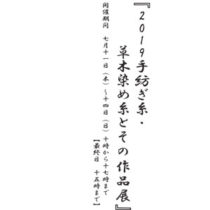 『2019手紡ぎ糸・
草木染め糸とその作品展』
開催期間　七月十一日（木）〜十四日（日）十時から十七時まで
【最終日　十五時まで】